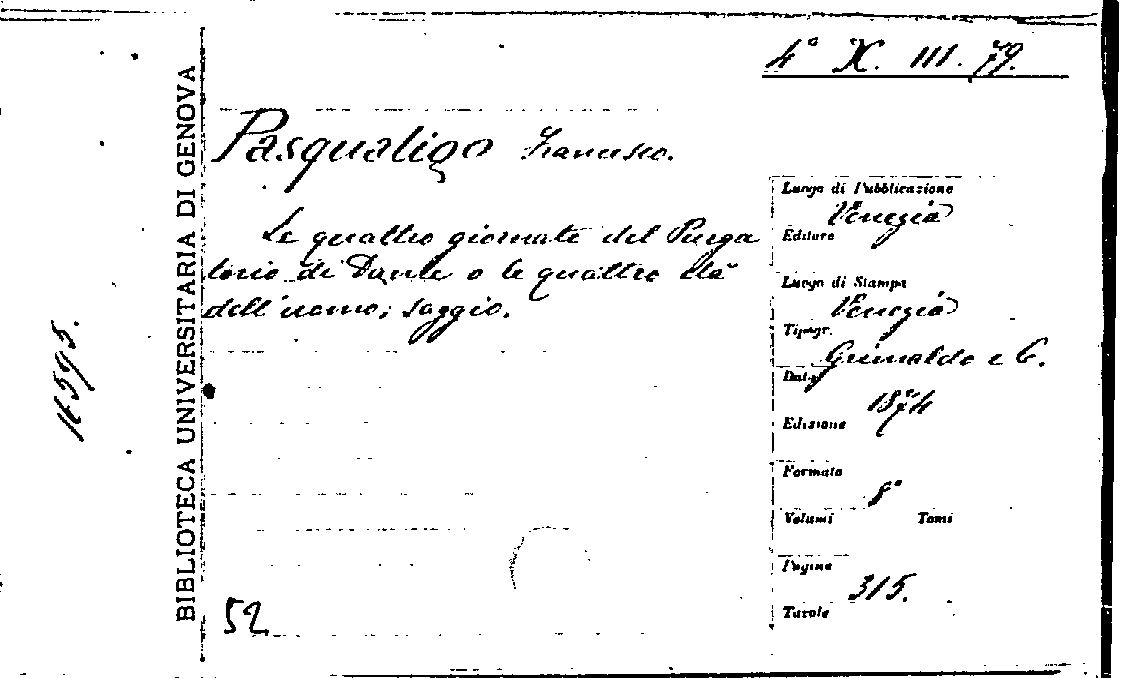 4° X. III. 79.
Pasqualigo Francesco.
Le quattro giornate del Purga
torio di Dante o le quattro età
dell'uomo; saggio.
52
BIBLIOTECA UNIVERSITARIA DI GENOVA
Luogo di Pubblicazione
Venezia
Editore
Luogo di Stampa
Venezia
Tipogr.
Grimaldo e C.
Data
1874
Edizione
Formato
8°
Volumi Tomi
Pagine
315.
Tavole